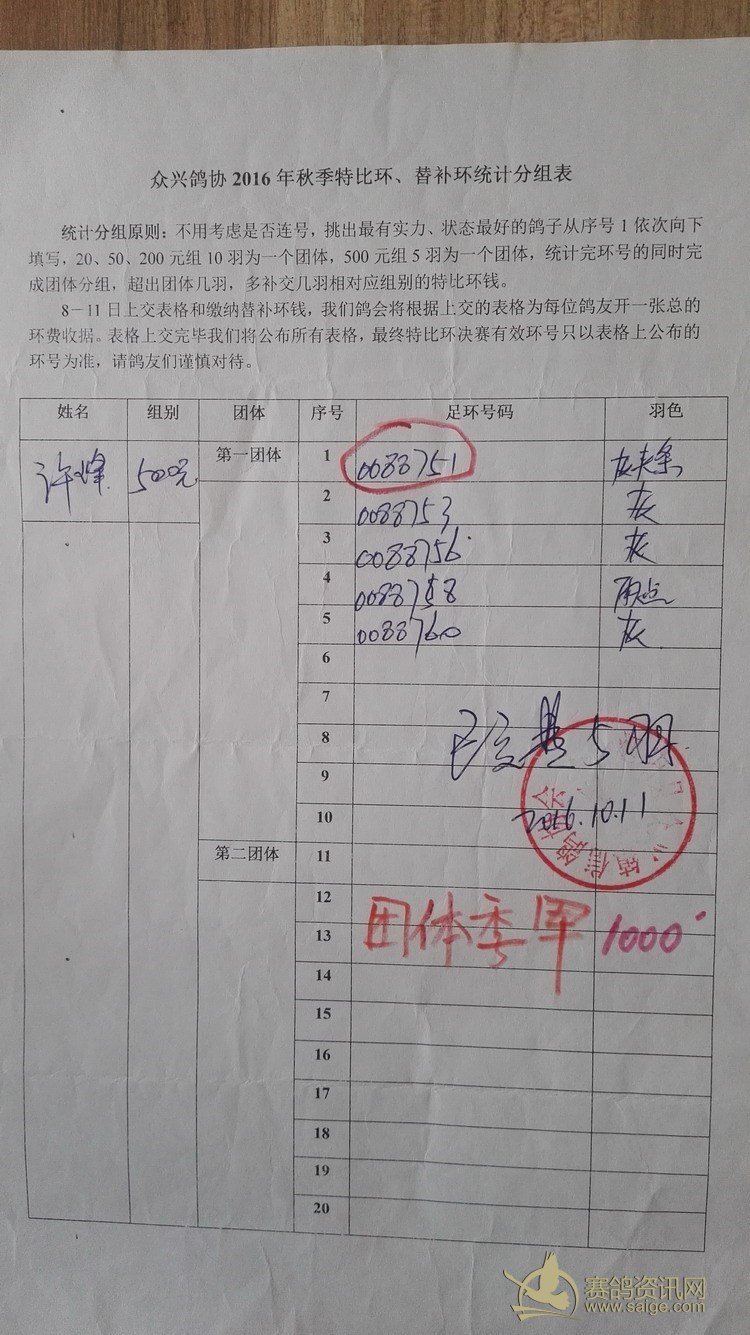 众兴鸽协 2016 年秋季特比环、替补环统计分组表
统计分组原则：不用考虑是否连号，挑出最有实力、状态最好的鸽子从序号 1 依次向下
填写，20、50、200 元组 10 羽为一个团体，500 元组 5 羽为一个团体，统计完环号的同时完
成团体分组，超出团体几羽，多补交几羽相对应组别的特比环钱。
8－11 日上交表格和缴纳替补环钱，我们鸽会将根据上交的表格为每位鸽友开一张总的
环费收据。表格上交完毕我们将公布所有表格，最终特比环决赛有效环号只以表格上公布的
环号为准，请鸽友们谨慎对待。
姓名 组别 团体 序号 足环号码 羽色
许峰 500元 第一团体 1 0088751 灰夹条
2 0088753 灰
3 0088756 灰
4 0088758 雨点
5 0088760 灰
6
7
8 已交费5羽
9
10 2016.10.11
第二团体 11
12
13 团体季军 1000
14
15
16
17
18
19
20
赛鸽资讯网
www.saige.com